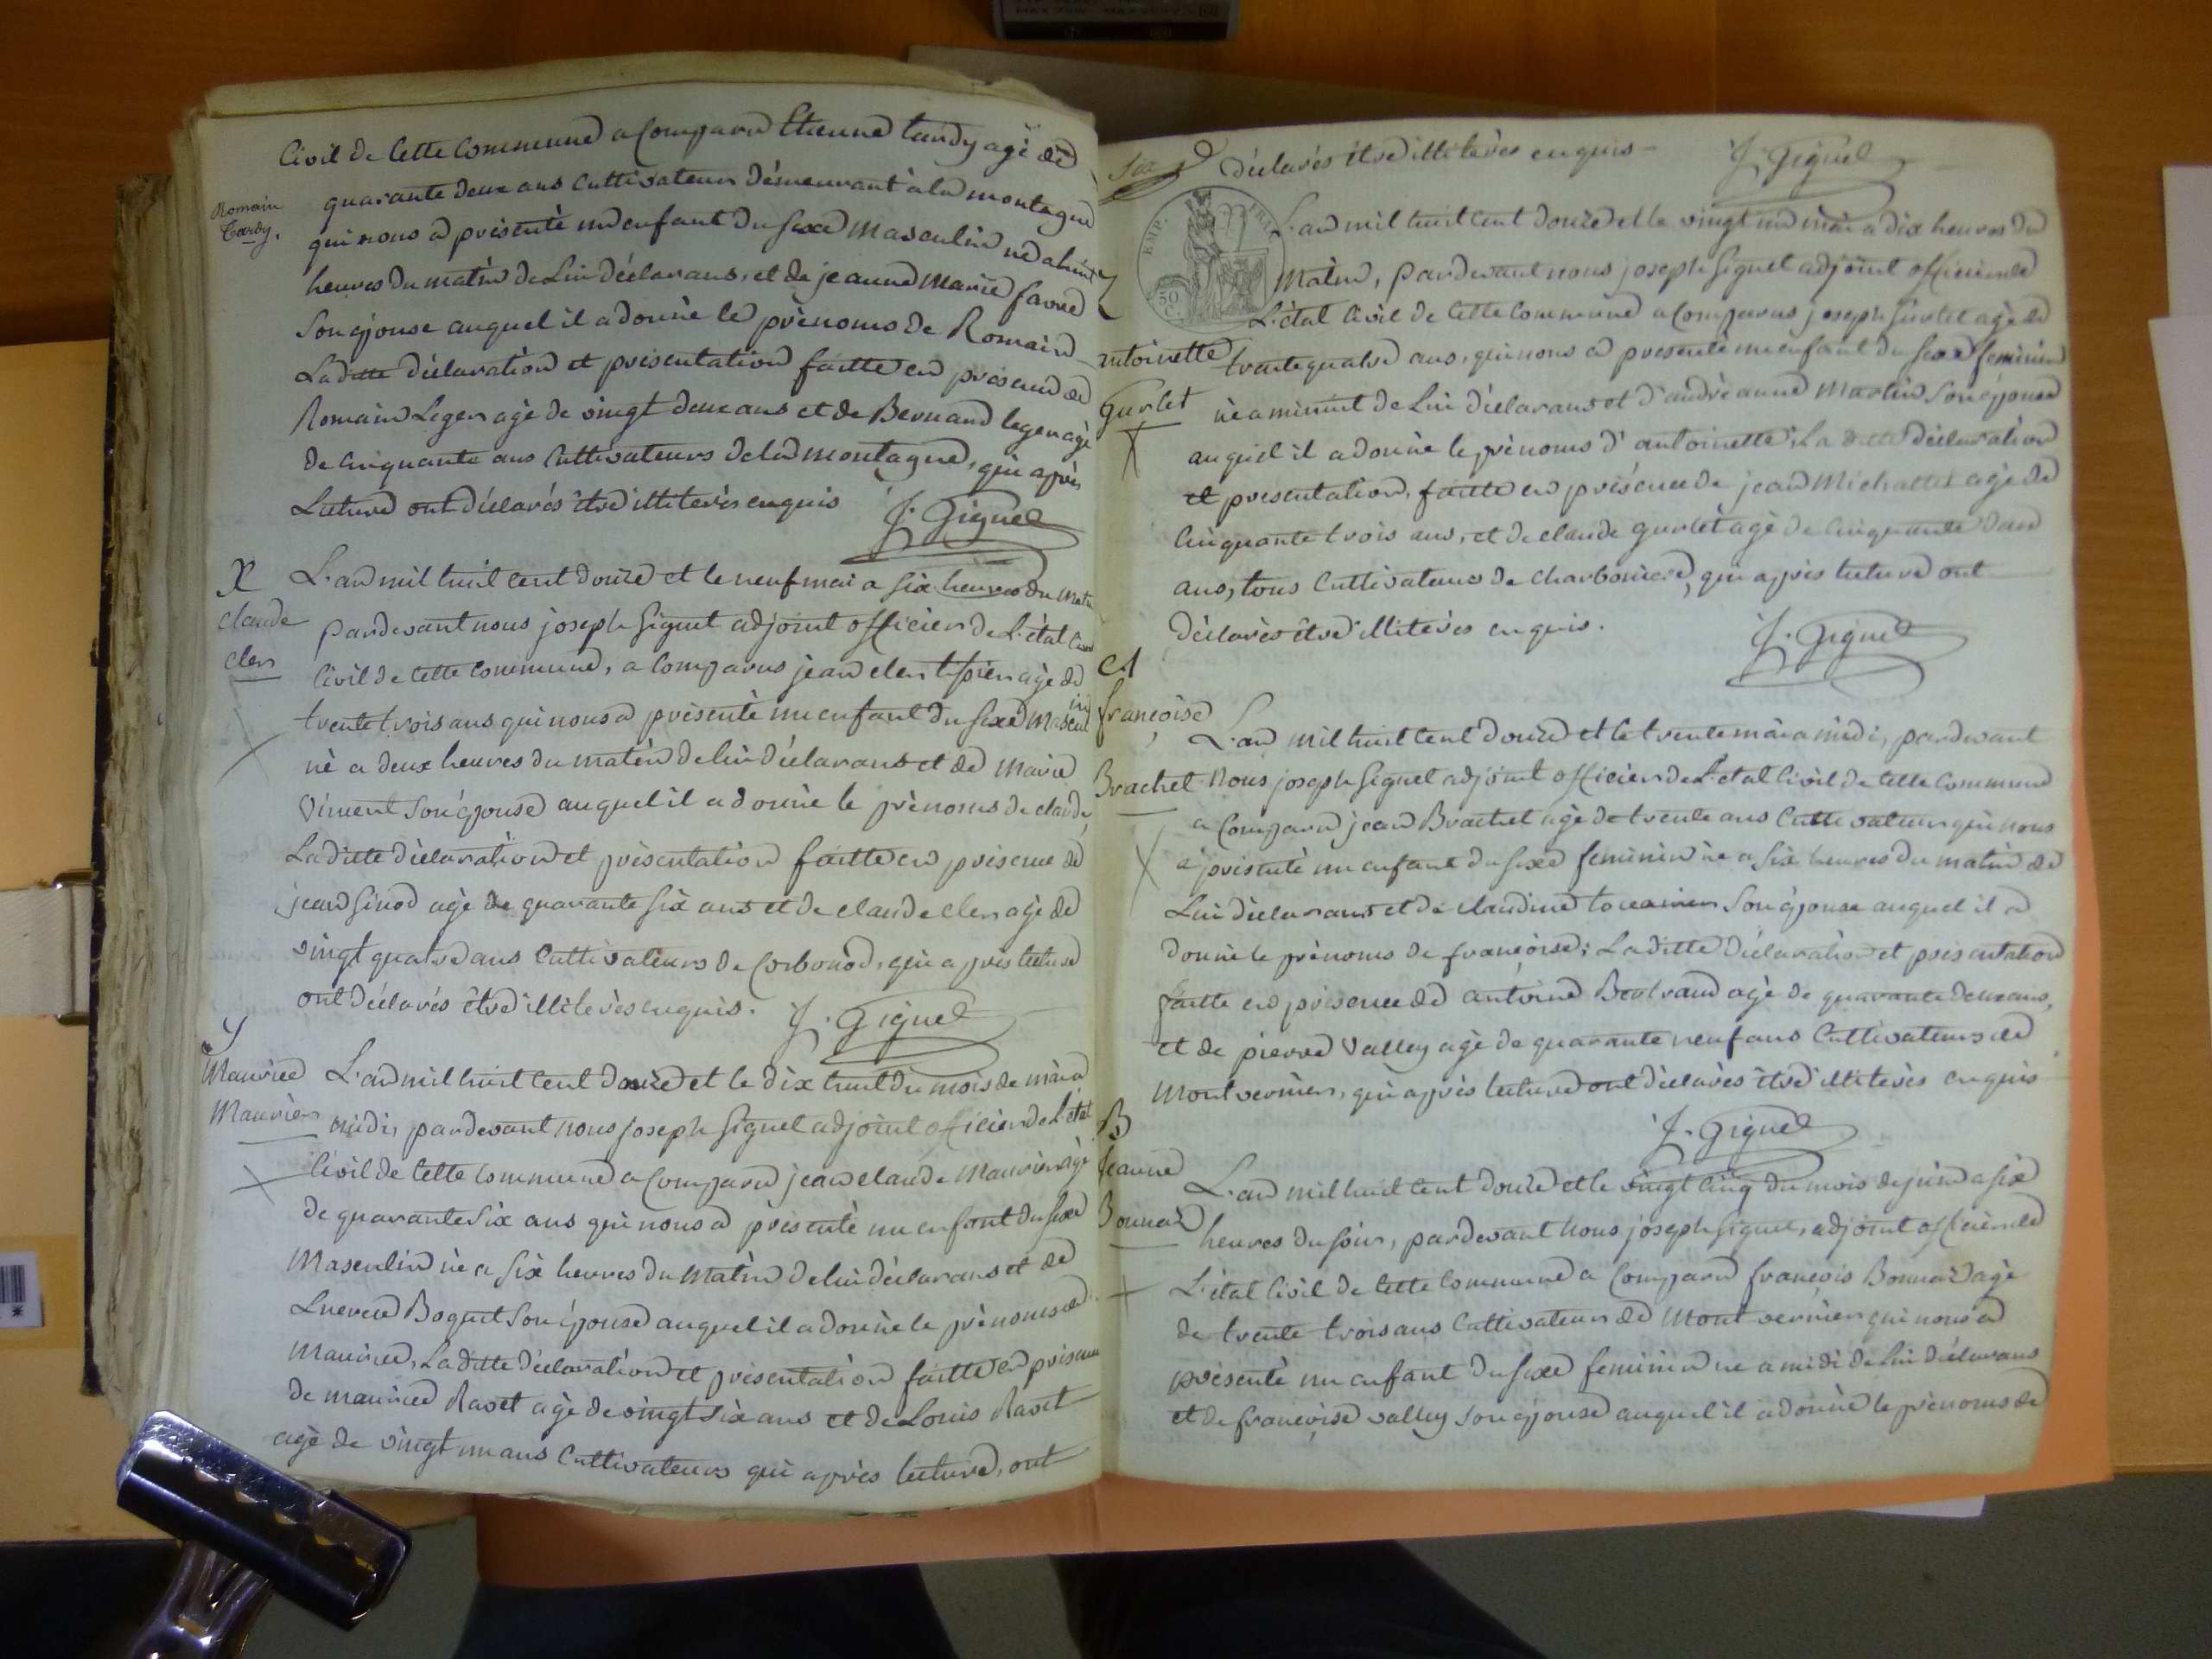 Civil de Cette Commune a Comparu Etienne tardy agé de
quarante deux ans Cultivateur démeurant à la montagne
Romain
Tardy.
qui nous a présenté un enfant du sexe Masculin né a huit
heures du matin de Lui déclarans, et de jeanne Marie favre
Son épouse auquel il a donné le prénoms de Romain
Laditte déclaration et présentation faitte en présence de
Romain Leger agé de vingt deux ans et de Bernard leger agé
de Cinquante ans Cultivateurs de la montagne, qui après
Lecture ont déclarés être illiterés enquis
J. Giguet
X
Claude
Cler
L'an mil huit cent douze et le neuf mai a six heures du matin
pardevant nous joseph Giguet adjoint officier de L'état
Civil de Cette Commune, a Comparus jean cler agé de
trente trois ans qui nous a présenté un enfant du sexe Masculin
né a deux heures du matin de lui déclarans et de Marie
Vincent son épouse auquel il a donné le prénoms de claude,
Laditte déclaration et présentation faitte en présence de
jean Ginod agé de quarante six ans et de claude cler agé de
vingt quatre ans Cultivateurs de Corbonod, qui après lecture
ont déclarés être illiterés enquis.
J. Giguet
Y
Maurice
Maurier
L'an mil huit cent douze et le dix huit du mois de mai a
midi, pardevant nous joseph Giguet adjoint officier de L'état
Civil de Cette Commune a Comparu jean claude Maurier agé
de quarante six ans qui nous a présenté un enfant du sexe
Masculin né a six heures du Matin de lui déclarans et de
Lucrece Boquet son épouse auquel il a donné le prénoms de
Maurice, Laditte déclaration et présentation faitte en présence
de maurice Ravet agé de vingt six ans et de Louis Ravet
agé de vingt un ans Cultivateurs qui après lecture, ont
Six
déclarés être illiterés enquis
J. Giguet
EMP. FRAN.
50 C.
Z
antoinette
Gurlet
L'an mil huit cent douze et le vingt un mai a dix heures du
Matin, pardevant nous joseph Giguet adjoint officier de
L'état Civil de Cette Commune a Comparus joseph Gurlet agé de
trente quatre ans, qui nous a présenté un enfant du sexe feminin
né a minuit de Lui déclarans et d'andréanne Martin son épouse
auquel il a donné le prénoms d'antoinette, La ditte déclaration
et presentation, faitte en présence de jean Michallet agé de
Cinquante trois ans, et de claude gurlet agé de Cinquante deux
ans, tous Cultivateurs de charbonière, qui après lecture ont
déclarés être illiterés enquis.
J. Giguet
A
françoise
Brachet
L'an mil huit cent douze et le trente mai a midi, pardevant
Nous joseph Giguet adjoint officier de L'état Civil de Cette Commune
a Comparu jean Brachet agé de trente ans Cultivateur qui nous
a présenté un enfant du sexe feminin né a six heures du matin de
Lui déclarans et de claudine son épouse auquel il a
donné le prénoms de françoise; La ditte déclaration et présentation
faitte en présence de antoine Bertrand agé de quarante deux ans,
et de pierre Valley agé de quarante neuf ans Cultivateurs de
Montvernier, qui après lecture ont déclarés être illiterés enquis
J. Giguet
B
jeanne
Bonnard
L'an mil huit cent douze et le vingt cinq du mois de juin a six
heures du soir, pardevant nous joseph Giguet, adjoint officier de
L'état Civil de Cette Commune a Comparu françois Bonnard agé
de trente trois ans Cultivateur de Mont vernier qui nous a
présenté un enfant du sexe feminin né a midi de Lui déclarans
et de françoise valley son épouse auquel il a donné le prénoms de